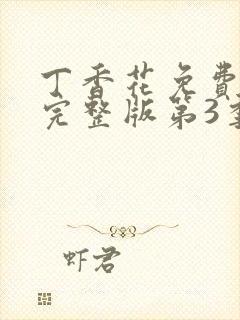 丁香花免费
完整版第3季
虾君